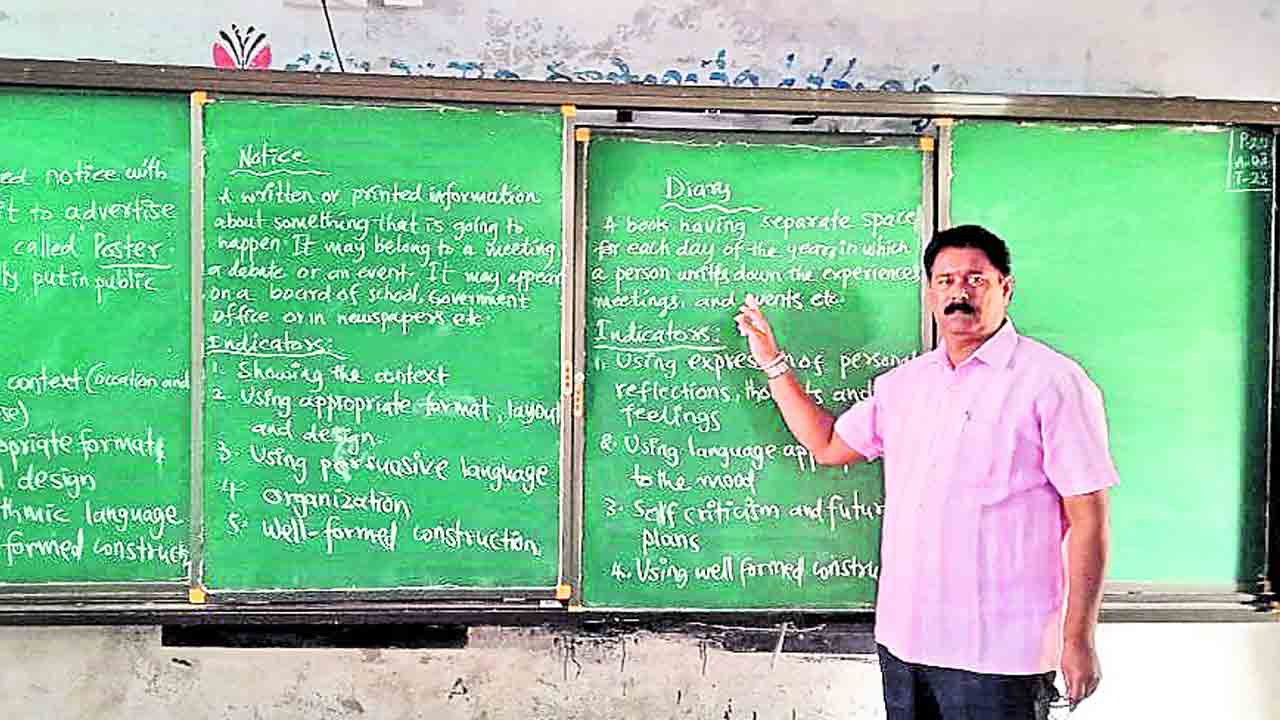 ed notice with
it to advertise
called Poster.
ly put in public
context (Location and
se)
opriate formats
design
thmic language
formed construct
Notice
A written or printed information
about something that is going to
happen. It may belong to a meeting
a debate or an event. It may appear
on a board of school, Goverment
office or in newspapers etc.
Indicators:
1. Showing the context
2. Using appropriate format, layout
and design.
3. Using persuasive language
4. organization
5. Well-formed construction
Diary
A book having separate space
for each day of the year, in which
a person writes down the experiences
meetings, and events etc.
Indicators:
1. Using expression of personal
reflections, thoughts and
feelings
2. Using language app
to the mood
3. Self criticism and futur
plans
4. Using well formed constru
A-03
T-23